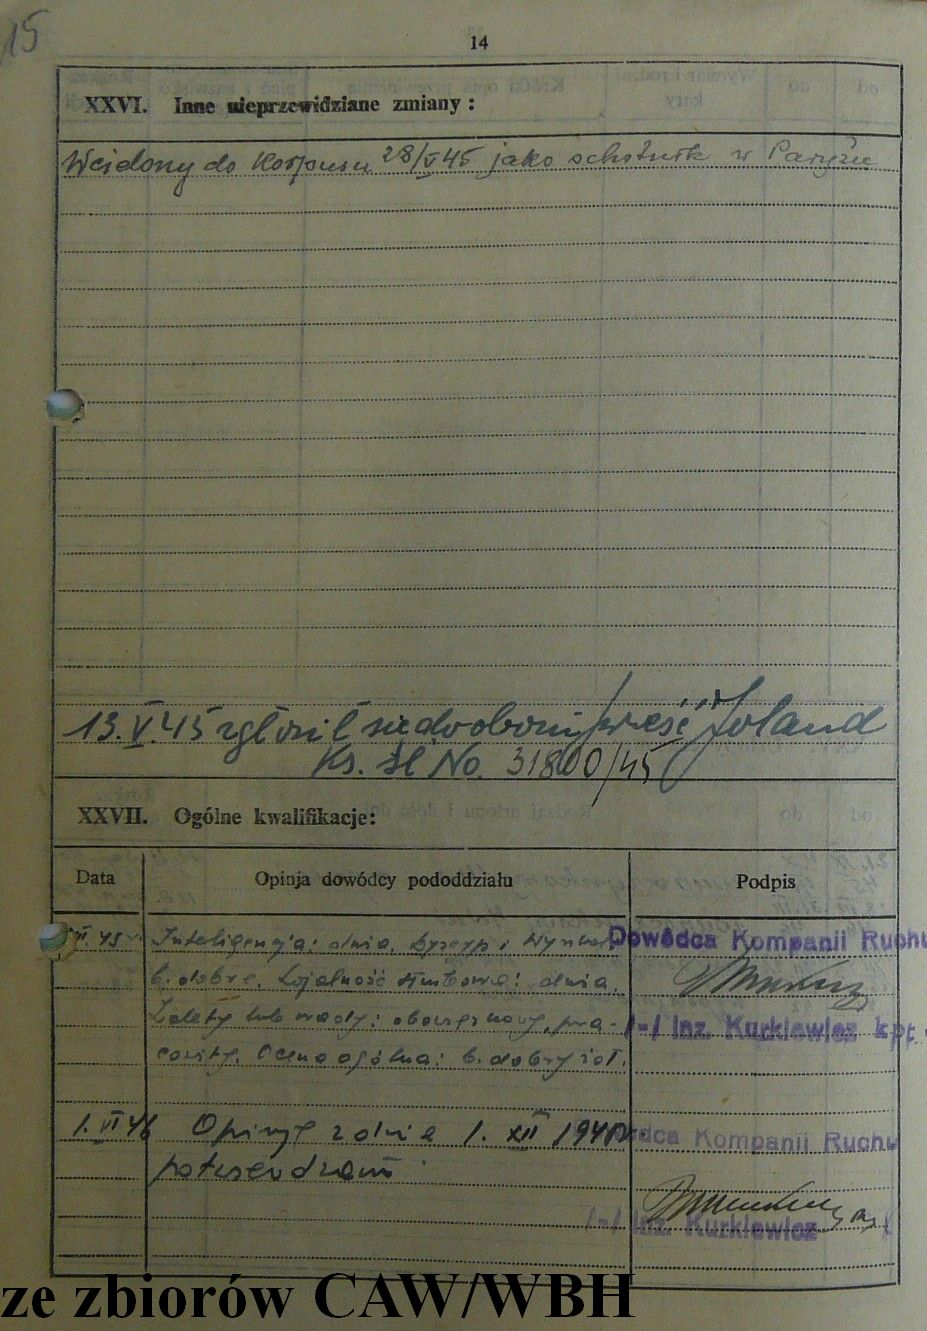 15
14
XXVI. Inne nieprzewidziane zmiany:
Wcielony do Korpusu 28/V 45 jako ochotnik w Paryżu
13.V.45 zgłosił się do obom Poland
Ks. Sł No. 31800/45
XXVII. Ogólne kwalifikacje:
Data Opinja dowódcy pododdziału Podpis
XII 45 Inteligencja: duża. Dyscyp i Dowódca Kompanii Ruchu
b. dobre. Lojalność służbowa: duża.
Zalety lub wady: obowiązkowy, pra- /-/ Inż. Kurkiewicz kpt.
cowity. Ocena ogólna: b. dobry żoł.
1. VI 46 Opinję z dnia 1. XII 1945 Dowódca Kompanii Ruchu
potwierdzam
/-/ Inż. Kurkiewicz
ze zbiorów CAW/WBH